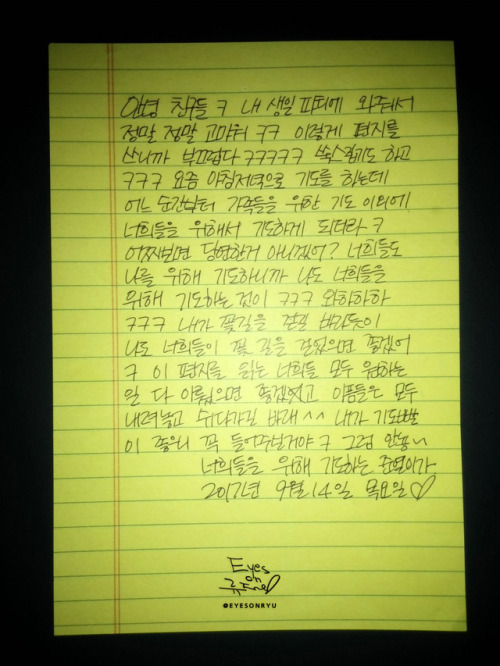 안녕 친구들 ㅋ 내 생일 파티에 와줘서
정말 정말 고마워 ㅋㅋ 이렇게 편지를
쓰니까 부끄럽다 ㅋㅋㅋㅋㅋ 쑥스럽기도 하고
ㅋㅋㅋ 요즘 아침저녁으로 기도를 하는데
어느 순간부터 가족들을 위한 기도 이외에
너희들을 위해서 기도하게 되더라 ㅋ
어찌보면 당연한거 아니겠어? 너희들도
나를 위해 기도하니까 나도 너희들을
위해 기도하는 것이 ㅋㅋㅋ 와하하하
ㅋㅋㅋ 내가 꽃길을 걷길 바라듯이
나도 너희들이 꽃 길을 걸었으면 좋겠어
ㅋ 이 편지를 읽는 너희들 모두 원하는
일 다 이뤘으면 좋겠었고 아픔들은 모두
내려놓고 쉬다가길 바래 ^^ 내가 기도빨
이 좋으니 꼭 들어주실거야 ㅋ 그럼 안농~
너희들을 위해 기도하는 준열이가
2017년 9월 14일 목요일♡
Eyes
on
류준열
@EYESONRYU